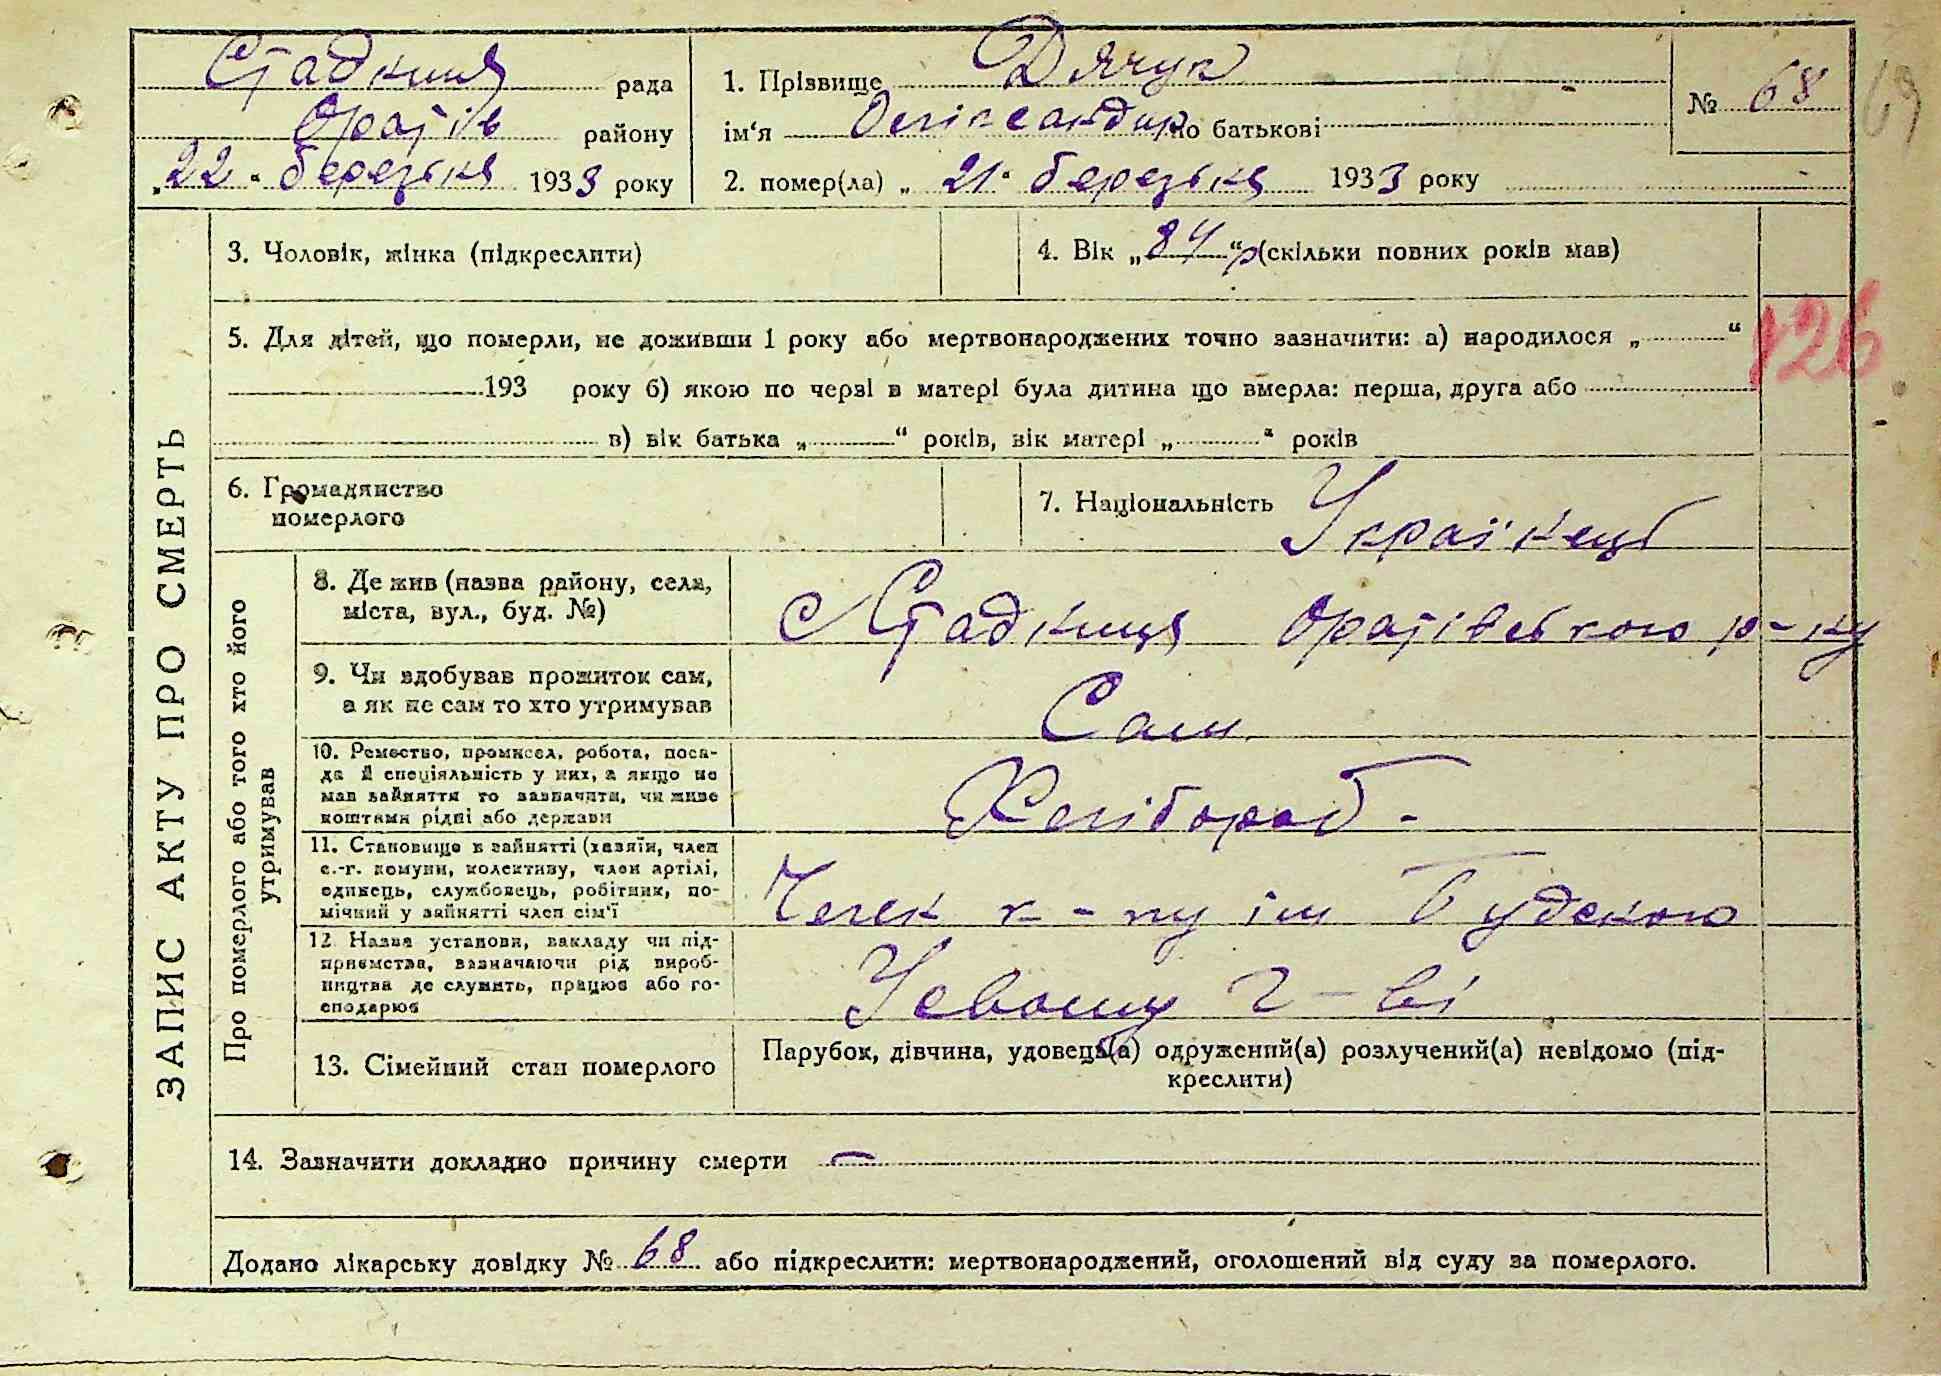 Стадниця рада
Оратів району
„22“ березня 1933 року
1. Прізвище Дячук
ім‘я Олександир по батькові
2. помер(ла) „21“ березня 1933 року
№ 68
69
ЗАПИС АКТУ ПРО СМЕРТЬ
3. Чоловік, жінка (підкреслити)
4. Вік „84“ р (скільки повних років мав)
5. Для дітей, що померли, не доживши 1 року або мертвонароджених точно зазначити: а) народилося „ “
193 року б) якою по черзі в матері була дитина що вмерла: перша, друга або
в) вік батька „ “ років, вік матері „ “ років
126
6. Громадянство
померлого
7. Національність Українець
Про померлого або того хто його
утримував
8. Де жив (назва району, села,
міста, вул., буд. №)
с Стадниця Оратівського р-ну
9. Чи здобував прожиток сам,
а як не сам то хто утримував
Сам
10. Ремество, промисел, робота, поса-
да й спеціяльність у них, а якщо не
мав зайняття то зазначити, чи живе
коштами рідні або держави
Хлібороб -
11. Становище в зайнятті (хазяїн, член
с.-г. комуни, колективу, член артілі,
одинець, службовець, робітник, по-
мічний у зайнятті член сім‘ї
Член к-пу ім Будьоного
12 Назва установи, закладу чи під-
приємства, зазначаючи рід вироб-
ництва де служить, працює або го-
сподарює
У свому г-ві
13. Сімейний стан померлого
Парубок, дівчина, удовець(а) одружений(а) розлучений(а) невідомо (під-
креслити)
14. Зазначити докладно причину смерти —
Додано лікарську довідку № 68 або підкреслити: мертвонароджений, оголошений від суду за померлого.